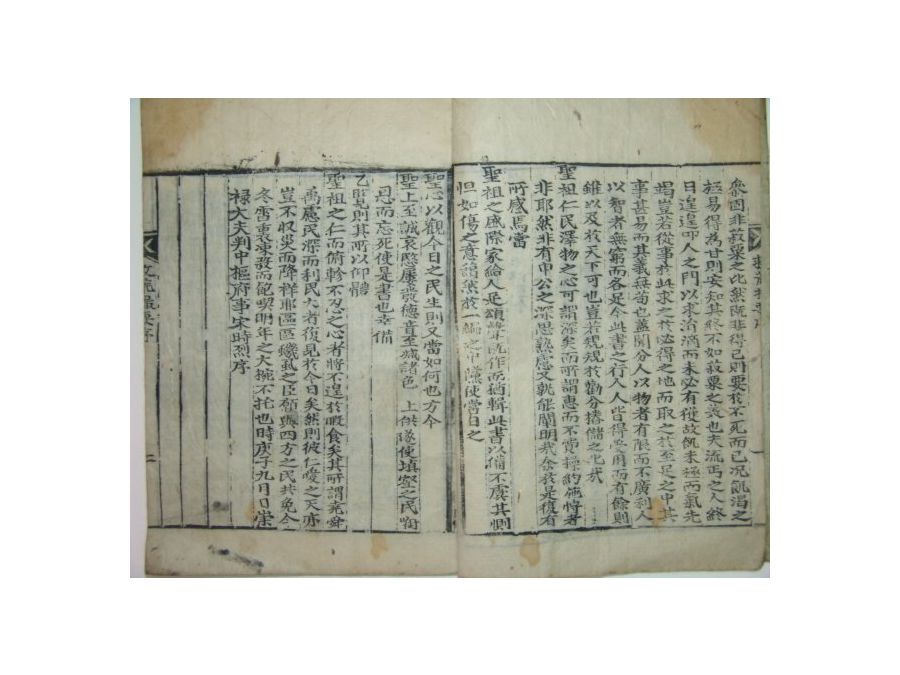 固非菽粟之比然旣非得已則要於不死而已況飢渴之
極易得為甘則安知其終不如菽粟之義也夫流丐之人終
日遑遑叩人之門以求滴而未必有獲故飢未極而氣先
竭豈若從事於此求之於必得之地而取之於至足之中其
事甚易而其義無苟也蓋聞分人以物者有限而不廣利人
以智者無窮而各足今此書之行人人皆得受用而有餘則
雖以及於天下可也豈若規規於勸分捲儲之比哉
聖祖仁民澤物之心可謂深矣而所謂惠而不費操約施博者
非耶然非有申公之深思熟慮又孰能闡明哉余於是復有
所感焉當
聖祖之盛際家給人足頌聲旣作而猶輯此書以備不虞其惻
怛如傷之意藹然於一編之中使當日之
聖心以觀今日之民生則又當如何也方今
聖上至誠哀愍屢發德音至減諸色 上供隊使塡壑之民
恩而忘死使是書也幸備
乙覽則其所以仰體
聖祖之仁而俯軫不忍之心者將不遑於暇食矣其所謂堯舜
禹慮民深而利民大者復見於今日矣然則彼仁愛之天亦
豈不收災而降祥耶區區蟣蝨之臣願與四方之民共免今
冬雪裏凍殍而飽喫明年之大椀不托也時庚子九月日崇
祿大夫判中樞府事宋時烈序
二